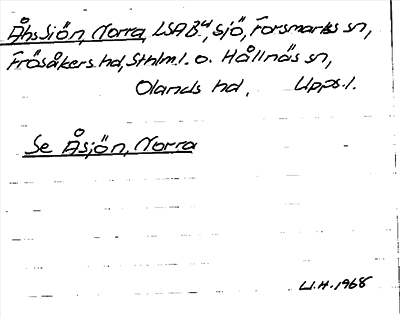 Åhssjön, Norra, LSAB⁴, sjö, Forsmarks sn,
Frösåkers hd, Sthlm.l. o. Hållnäs sn,
Olands hd, Upps.l.
Se Åsjön, Norra
U.H. 1968